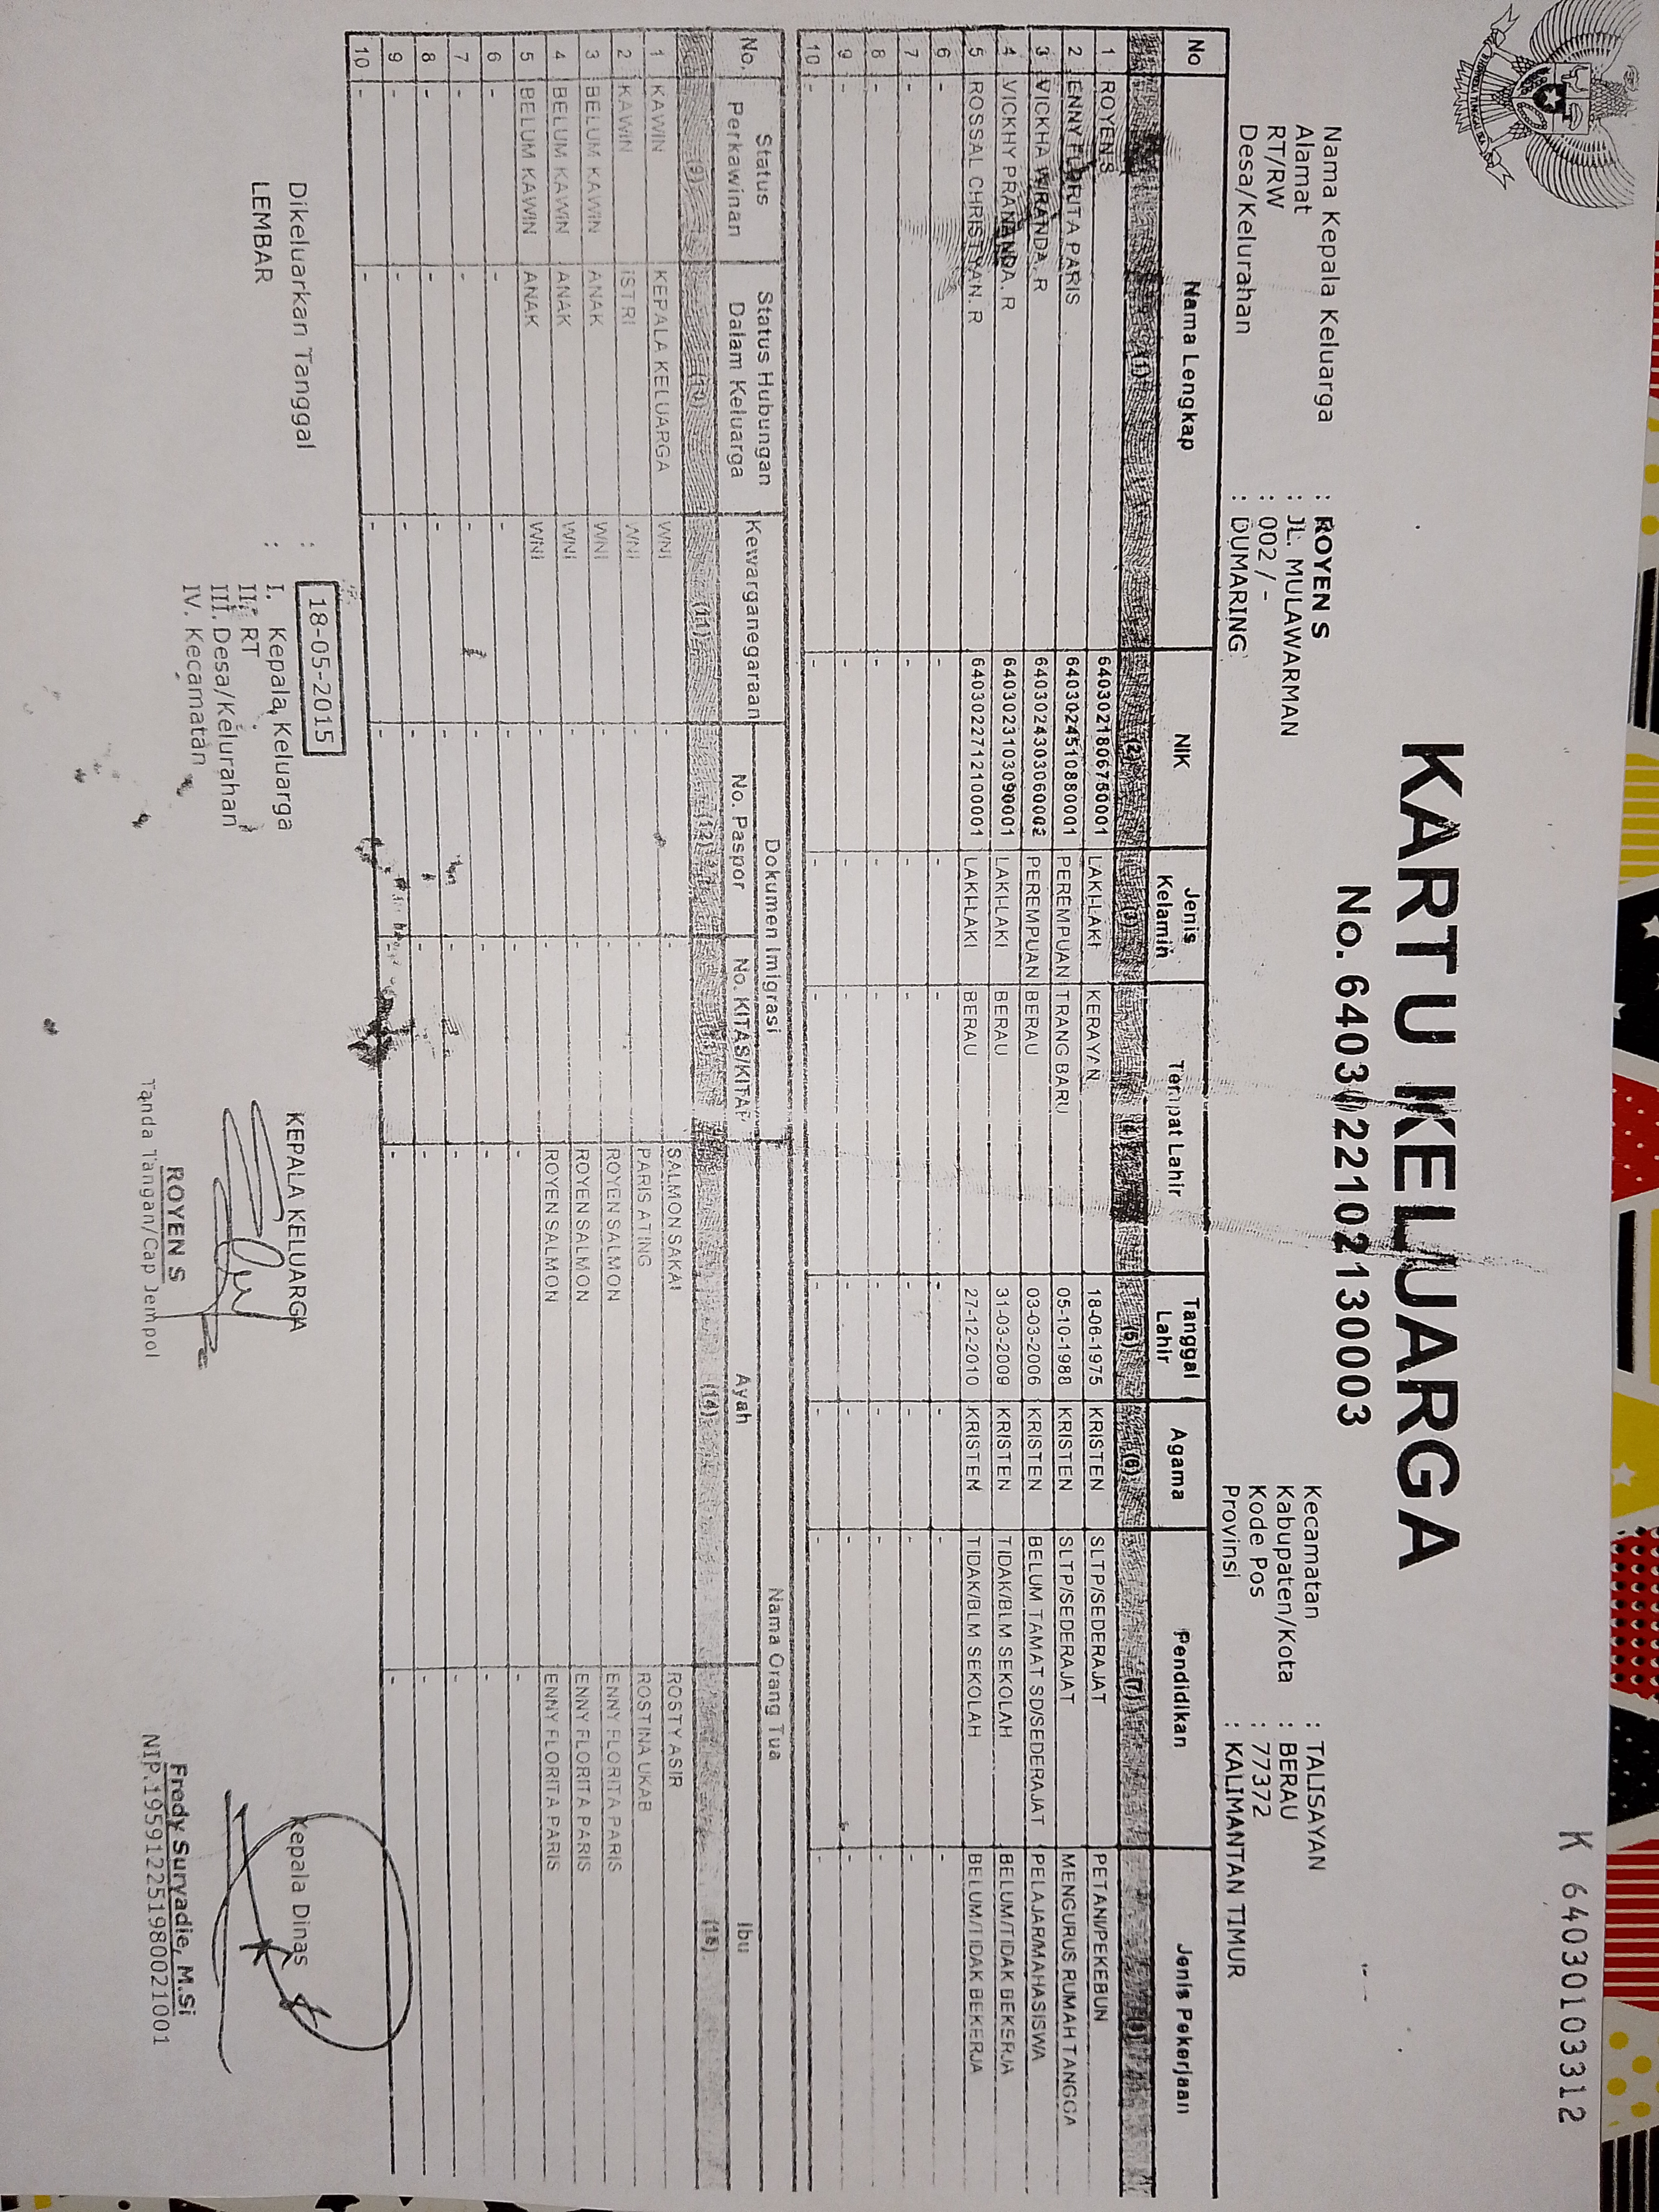 K 640301033​12
KARTU KELUARGA
No. 6403022210130003
Nama Kepala Keluarga : ROYEN S
Alamat : JL. MULAWARMAN
RT/RW : 002 / -
Desa/Kelurahan : DUMARING
Kecamatan : TALISAYAN
Kabupaten/Kota : BERAU
Kode Pos : 77372
Provinsi : KALIMANTAN TIMUR
No Nama Lengkap NIK Jenis Kelamin Tempat Lahir Tanggal Lahir Agama Pendidikan Jenis Pekerjaan
(1) (2) (3) (4) (5) (6) (7) (8)
1 ROYEN S 6403021806750001 LAKI-LAKI KERAYAN 18-06-1975 KRISTEN SLTP/SEDERAJAT PETANI/PEKEBUN
2 ENNY FLORITA PARIS 6403024510880001 PEREMPUAN TRANG BARU 05-10-1988 KRISTEN SLTP/SEDERAJAT MENGURUS RUMAH TANGGA
3 VICKHA WIRANDA. R 6403024303060002 PEREMPUAN BERAU 03-03-2006 KRISTEN BELUM TAMAT SD/SEDERAJAT PELAJAR/MAHASISWA
4 VICKHY PRANANDA. R 6403023103090001 LAKI-LAKI BERAU 31-03-2009 KRISTEN TIDAK/BLM SEKOLAH BELUM/TIDAK BEKERJA
5 ROSSAL CHRISTYAN. R 6403022712100001 LAKI-LAKI BERAU 27-12-2010 KRISTEN TIDAK/BLM SEKOLAH BELUM/TIDAK BEKERJA
6 - - - - - - - -
7 - - - - - - - -
8 - - - - - - - -
9 - - - - - - - -
10 - - - - - - - -
No. Status Perkawinan Status Hubungan Dalam Keluarga Kewarganegaraan Dokumen Imigrasi Nama Orang Tua
No. Paspor No. KITAS/KITAP Ayah Ibu
(9) (10) (11) (12) (14) (15)
1 KAWIN KEPALA KELUARGA WNI - - SALMON SAKAI ROSTY ASIR
2 KAWIN ISTRI WNI - - PARIS ATING ROSTINA UKAB
3 BELUM KAWIN ANAK WNI - - ROYEN SALMON ENNY FLORITA PARIS
4 BELUM KAWIN ANAK WNI - - ROYEN SALMON ENNY FLORITA PARIS
5 BELUM KAWIN ANAK WNI - - ROYEN SALMON ENNY FLORITA PARIS
6 - - - - - - -
7 - - - - - - -
8 - - - - - - -
9 - - - - - - -
10 - - - - - - -
Dikeluarkan Tanggal : 18-05-2015
LEMBAR : I. Kepala Keluarga
II. RT
III. Desa/Kelurahan
IV. Kecamatan
KEPALA KELUARGA
ROYEN S
Tanda Tangan/Cap Jempol
Kepala Dinas
Fredy Suryadie, M.Si
NIP.195912251980021001